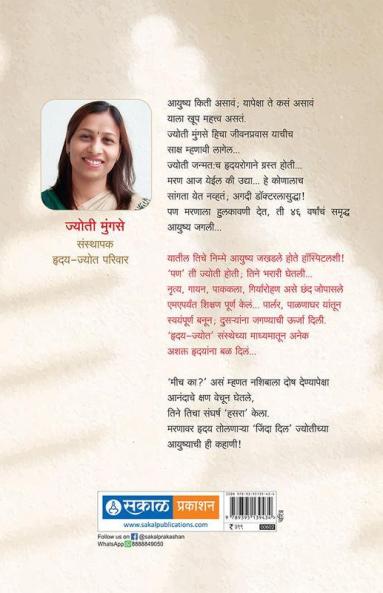 आयुष्य किती असावं; यापेक्षा ते कसं असावं
याला खूप महत्त्व असतं.
ज्योती मुंगसे हिचा जीवनप्रवास याचीच
साक्ष म्हणावी लागेल...
ज्योती जन्मतःच हृदयरोगाने ग्रस्त होती...
मरण आज येईल की उद्या... हे कोणालाच
सांगता येत नव्हतं; अगदी डॉक्टरलासुद्धा!
पण मरणाला हुलकावणी देत, ती ४६ वर्षांचं समृद्ध
आयुष्य जगली...
ज्योती मुंगसे
संस्थापक
हृदय-ज्योत परिवार
यातील तिचे निम्मे आयुष्य जखडले होते हॉस्पिटलशी!
'पण' ती ज्योती होती; तिने भरारी घेतली...
नृत्य, गायन, पाककला, गिर्यारोहण असे छंद जोपासले
एमएपर्यंत शिक्षण पूर्ण केलं... पार्लर, पाळणाघर यांतून
स्वयंपूर्ण बनून; दुसऱ्यांना जगण्याची ऊर्जा दिली.
'हृदय-ज्योत' संस्थेच्या माध्यमातून अनेक
अशक्त हृदयांना बळ दिलं...
'मीच का?' असं म्हणत नशिबाला दोष देण्यापेक्षा
आनंदाचे क्षण वेचून घेतले,
तिने तिचा संघर्ष 'हसरा' केला.
मरणावर हृदय तोलणाऱ्या 'जिंदा दिल' ज्योतीच्या
आयुष्याची ही कहाणी!
सकाळ प्रकाशन
www.sakalpublications.com
Follow us on @sakalprakashan
WhatsApp 8888849050
₹ ३९९